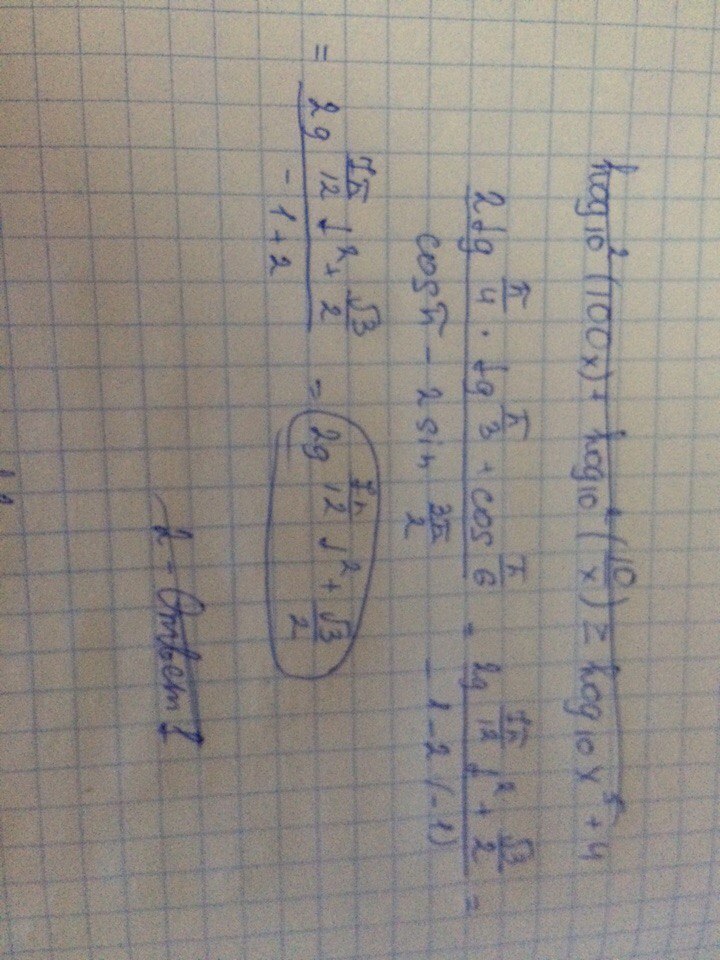 log₁₀²(100x) + log₁₀²(10/x) ≥ log₁₀x⁵ + 4
(2tg π/4 · tg π/3 + cos π/6)/(cos π − 2 sin 3π/2) = (2g 7π/12 t² + √3/2)/(−1 − 2(−1)) =
= (2g 7π/12 t² + √3/2)/(−1 + 2) = 2g 7π/12 t² + √3/2
2 - Ответ!